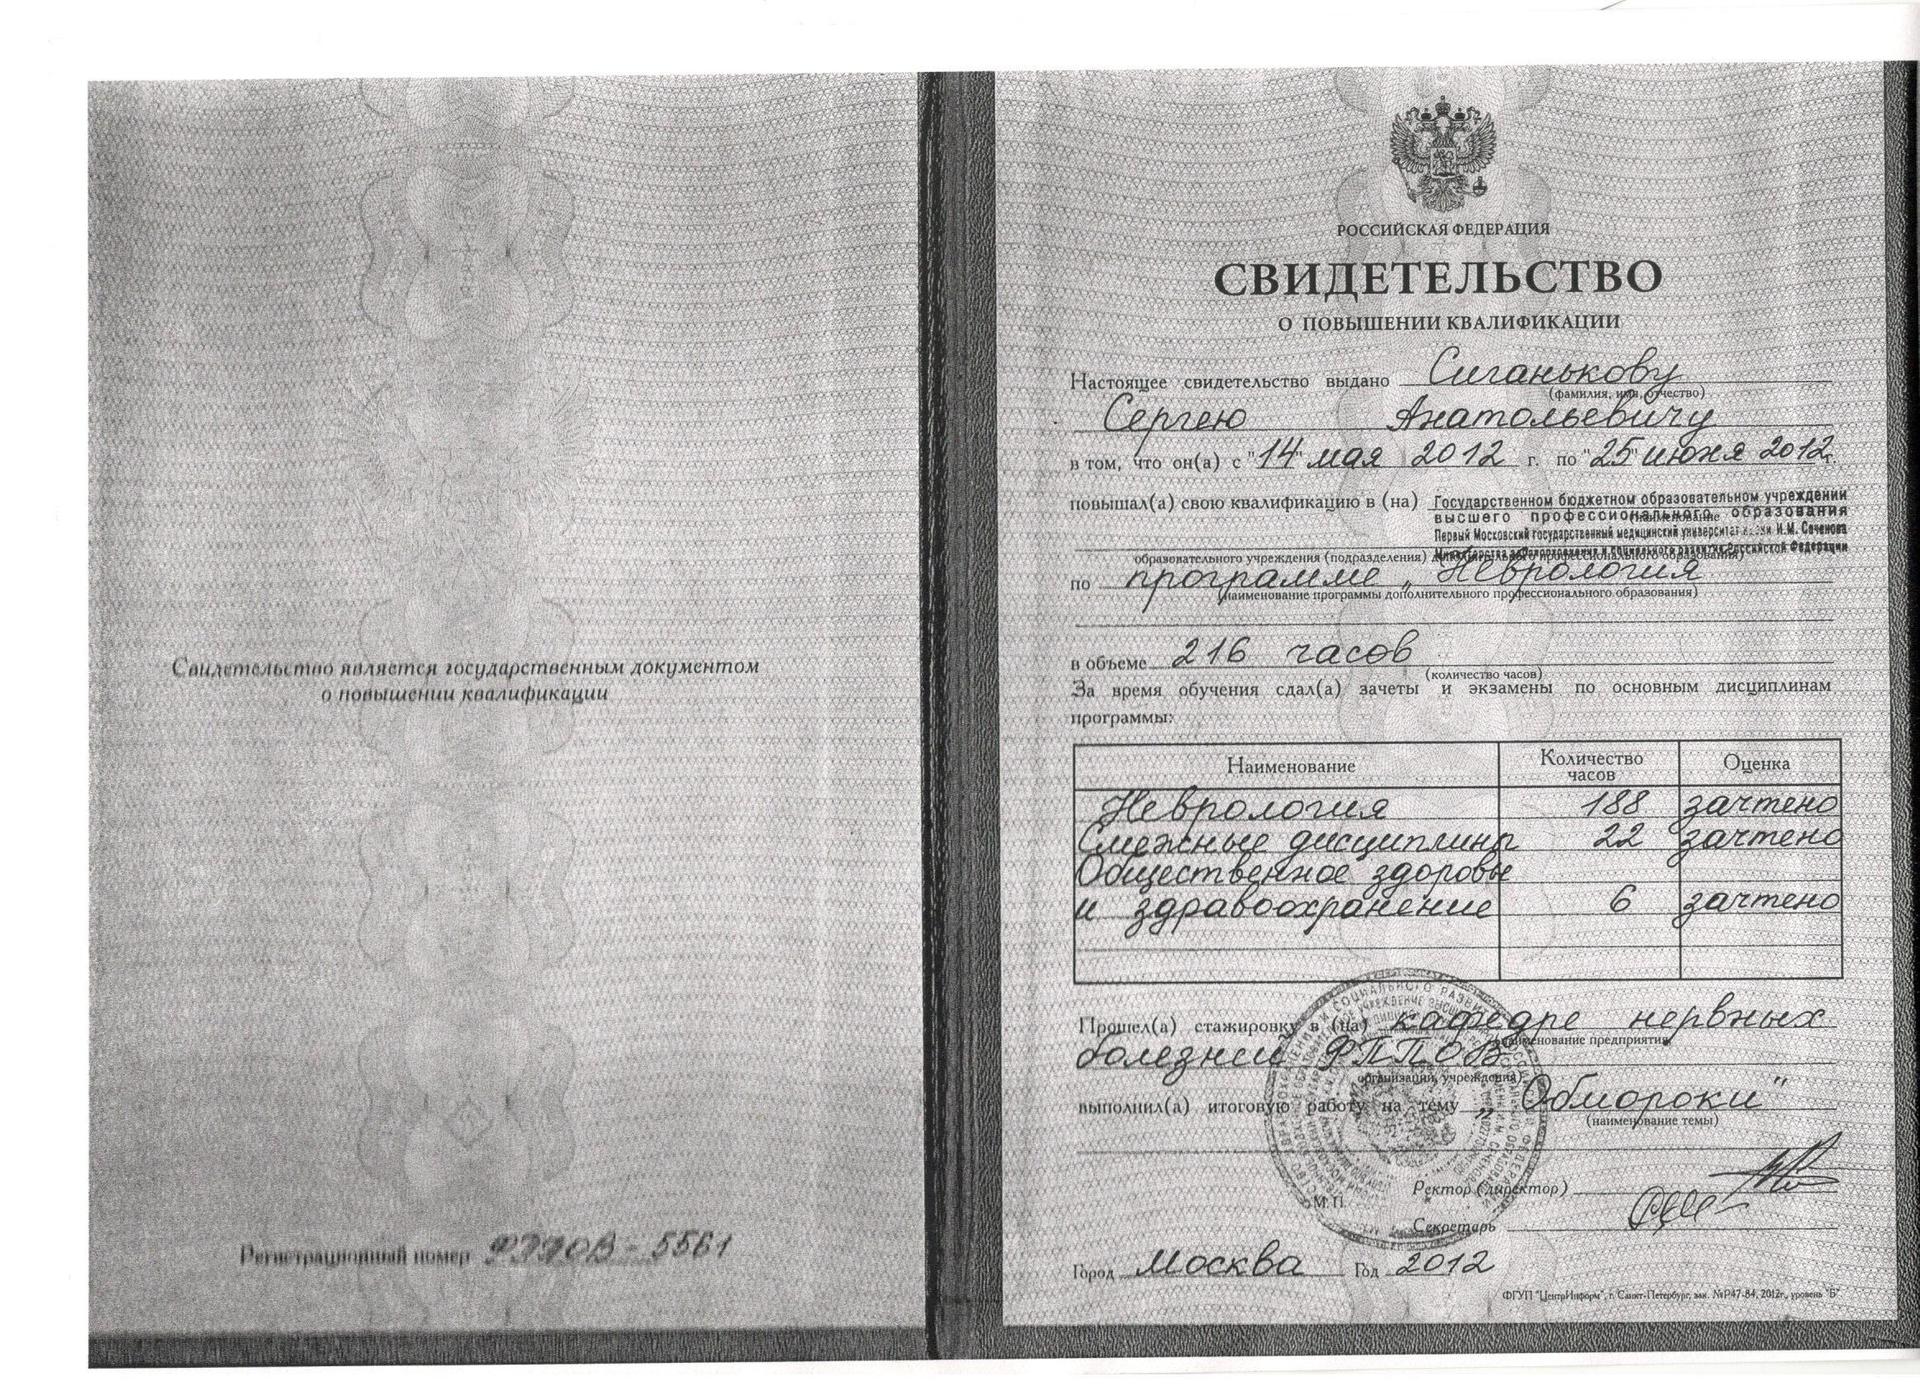 Свидетельство является государственным документом
о повышении квалификации
Регистрационный номер ФППОВ - 5561
РОССИЙСКАЯ ФЕДЕРАЦИЯ
СВИДЕТЕЛЬСТВО
О ПОВЫШЕНИИ КВАЛИФИКАЦИИ
Настоящее свидетельство выдано Сиганькову
(фамилия, имя, отчество)
Сергею Анатольевичу
в том, что он(а) с "14" мая 2012 г. по "25" июня 2012 г.
повышал(а) свою квалификацию в (на) Государственном бюджетном образовательном учреждении
высшего профессионального образования
(наименование
Первый Московский государственный медицинский университет имени И.М. Сеченова
Министерства здравоохранения и социального развития Российской Федерации
образовательного учреждения (подразделения) дополнительного профессионального образования)
по программе „Неврология
(наименование программы дополнительного профессионального образования)
в объеме 216 часов
(количество часов)
За время обучения сдал(а) зачеты и экзамены по основным дисциплинам
программы:
Наименование Количество часов Оценка
Неврология 188 зачтено
Смежные дисциплины 22 зачтено
Общественное здоровье
и здравоохранение 6 зачтено
Прошел(а) стажировку в (на) кафедре нервных
(наименование предприятия,
болезней ФППОВ
организации, учреждения)
выполнил(а) итоговую работу на тему „Обмороки"
(наименование темы)
Ректор (директор)
М.П.
Секретарь
Город Москва Год 2012
ФГУП "ЦентрИнформ", г. Санкт-Петербург, зак. №Р47-84, 2012г., уровень "Б"